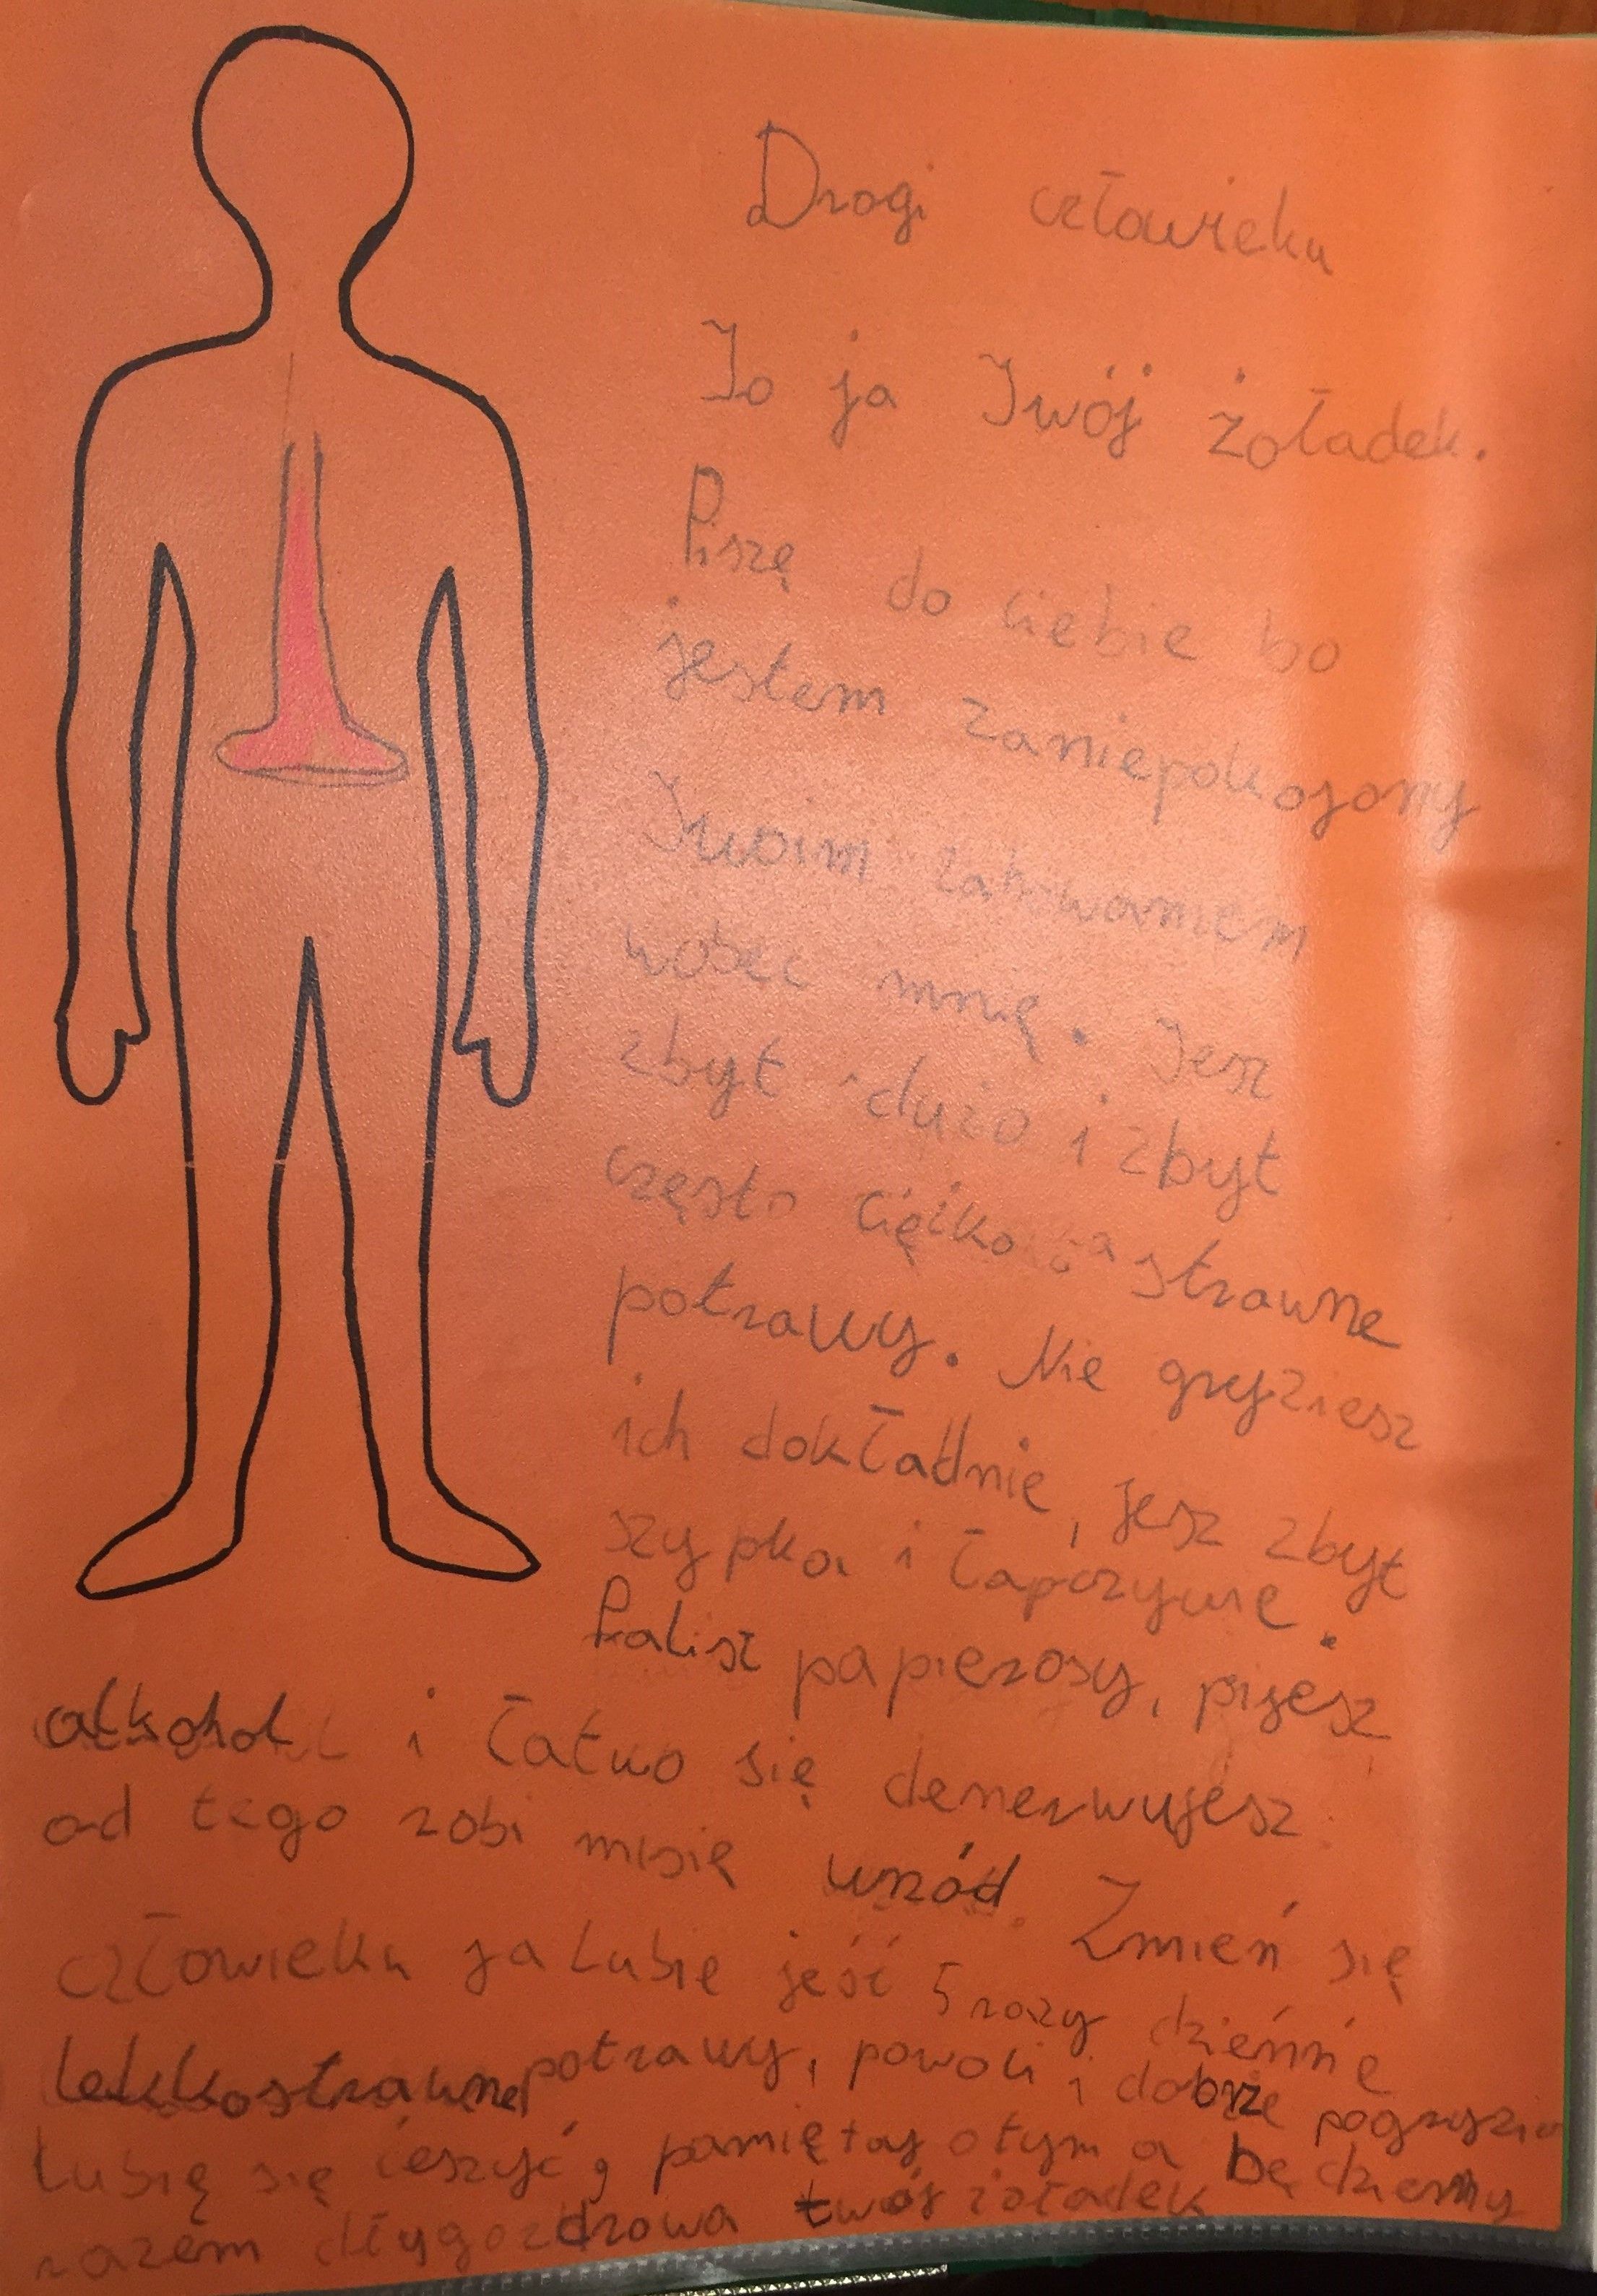 Drogi człowieku
To ja Twój żoładek.
Piszę do ciebie bo
jestem zaniepokojony
Twoim zahwaniem
wobec mnię. Jesz
zbyt dużo i zbyt
często ciężko strawne
potrawy. Nie gryziesz
ich dokładnie, jesz zbyt
szypko i łapczywie.
Palisz papierosy, pijesz
alkohol i łatwo się denerwujesz
od tego robi misię wrzód. Zmień się
człowieku ja lubie jeść 5 razy dzieńnie
lekkostrawne potrawy, powoli i dobrze pogryzio
lubię się cieszyć, pamiętaj otym a będziemy
razem dłygo zdrowa twój żoładek